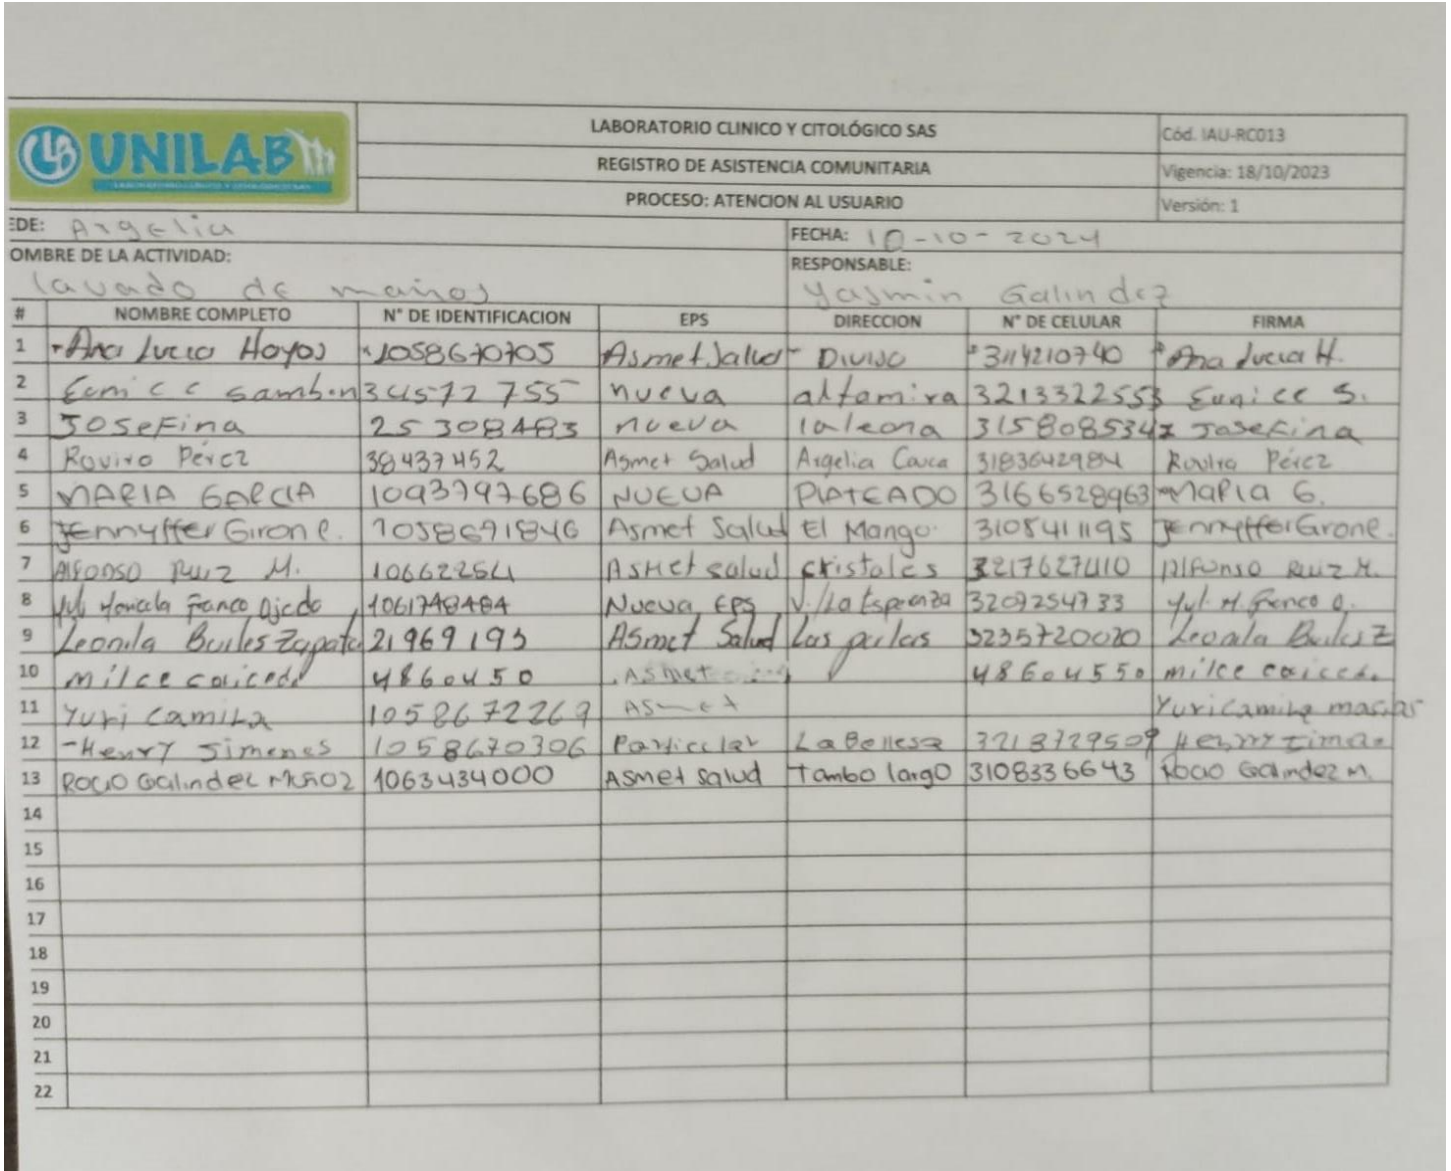 UNILAB
LABORATORIO CLINICO Y CITOLÓGICO SAS
LABORATORIO CLINICO Y CITOLÓGICO SAS
Cód. IAU-RC013
REGISTRO DE ASISTENCIA COMUNITARIA
Vigencia: 18/10/2023
PROCESO: ATENCION AL USUARIO
Versión: 1
EDE: Argelia FECHA: 10-10-2024
OMBRE DE LA ACTIVIDAD: RESPONSABLE:
lavado de manos Yasmin Galindez
# NOMBRE COMPLETO N° DE IDENTIFICACION EPS DIRECCION N° DE CELULAR FIRMA
1 Ana Lucia Hoyos 1058670705 Asmet Salud Diviso 3114210740 Ana Lucia H.
2 Eunice Sambon 34572755 nueva altamira 3213322553 Eunice S.
3 JOSEFina 25308483 nueva laleona 3158085347 Josefina
4 Roviro Pérez 38437452 Asmet Salud Argelia Cauca 3183642984 Roviro Pérez
5 MARIA GARCIA 1093797686 NUEVA PLATEADO 3166528963 MARIA G.
6 Jennyffer Giron e. 1058691846 Asmet Salud El Mango 3105411195 Jennyffer Giron e.
7 Alfonso Ruiz M. 10662254 Asmet salud cristales 3217627410 Alfonso Ruiz M.
8 Yuli Maricela Franco Ojeda 1061748484 Nueva EPS V./La Esperanza 3209254733 Yul. M. Franco O.
9 Leonila Builes Zapata 21969193 Asmet Salud Las perlas 3235720020 Leonila Builes Z
10 milce caicedo 48604550 Asmet 48604550 milce caicedo
11 Yuri Camila 1058672269 Asmet Yuri camila macias
12 -Henry Jimenes 1058670306 Particular La Bellesa 3218729509 Henry Jime
13 ROCIO Galindez MUÑOZ 1063434000 Asmet salud Tambo largo 3108336643 Rocio Galindez M.
14
15
16
17
18
19
20
21
22